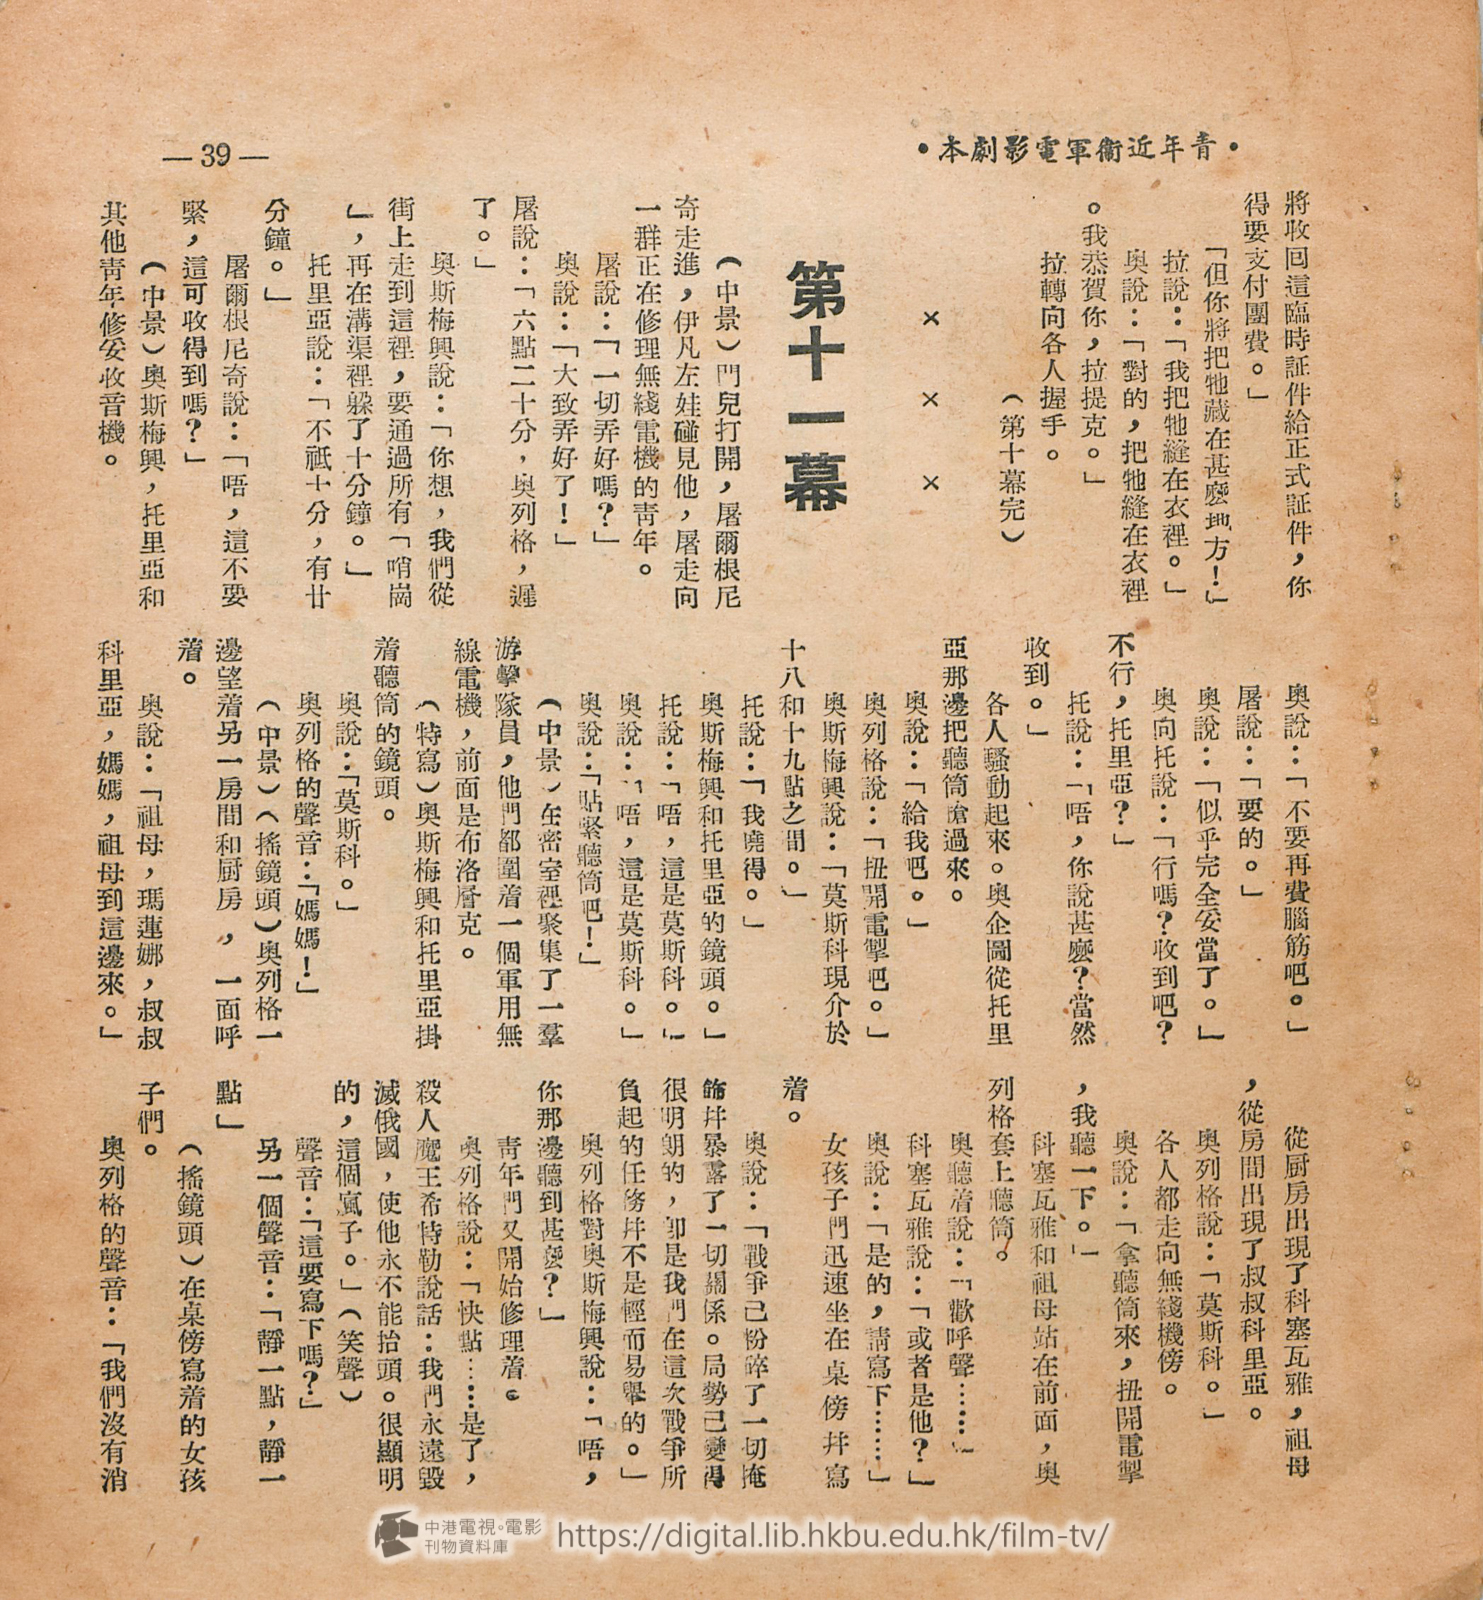 •青年近衞軍電影劇本•
—39—
將收回這臨時証件給正式証件，你
得要支付團費。」
「但你將把牠藏在甚麽地方！」
拉說：「我把牠縫在衣裡。」
奧說：「對的，把牠縫在衣裡
。我恭賀你，拉提克。」
拉轉向各人握手。
（第十幕完）
×　×　×
第十一幕
（中景）門兒打開，屠爾根尼
奇走進，伊凡左娃碰見他，屠走向
一群正在修理無綫電機的靑年。
屠說：「一切弄好嗎？」
奧說：「大致弄好了！」
屠說：「六點二十分，奧列格，遲
了。」
奧斯梅興說：「你想，我們從
街上走到這裡，要通過所有「哨崗
」，再在溝渠裡躲了十分鐘。」
托里亞說：「不祗十分，有廿
分鐘。」
屠爾根尼奇說：「唔，這不要
緊，這可收得到嗎？」
（中景）奧斯梅興，托里亞和
其他靑年修妥收音機。
奧說：「不要再費腦筋吧。」
屠說：「要的。」
奧說：「似乎完全妥當了。」
奧向托說：「行嗎？收到吧？
不行，托里亞？」
托說：「唔，你說甚麽？當然
收到。」
各人騷動起來。奧企圖從托里
亞那邊把聽筒搶過來。
奧說：「給我吧。」
奧列格說：「扭開電掣吧。」
奧斯梅興說：「莫斯科現介於
十八和十九點之間。」
托說：「我曉得。」
奧斯梅興和托里亞的鏡頭。」
托說：「唔，這是莫斯科。」
奧說：「唔，這是莫斯科。」
奧說：「貼緊聽筒吧！」
（中景）在密室裡聚集了一羣
游擊隊員，他門都圍着一個軍用無
線電機，前面是布洛層克。
（特寫）奧斯梅興和托里亞掛
着聽筒的鏡頭。
奧說：「莫斯科。」
奧列格的聲音：「媽媽！」
（中景）（搖鏡頭）奧列格一
邊望着另一房間和厨房，一面呼
着。
奧說：「祖母，瑪蓮娜，叔叔
科里亞，媽媽，祖母到這邊來。」
從厨房出現了科塞瓦雅，祖母
，從房間出現了叔叔科里亞。
奧列格說：「莫斯科。」
各人都走向無綫機傍。
奧說：「拿聽筒來，扭開電掣
，我聽一下。」
科塞瓦雅和祖母站在前面，奧
列格套上聽筒。
奧聽着說：「歡呼聲……」
科塞瓦雅說：「或者是他？」
奧說：「是的，請寫下……」
女孩子門迅速坐在桌傍幷寫
着。
奧說：「戰爭已粉碎了一切掩
飾幷暴露了一切關係。局勢已變得
很明朗的，卽是我們在這次戰爭所
負起的任務幷不是輕而易舉的。」
奧列格對奧斯梅興說：「唔，
你那邊聽到甚麽？」
靑年門又開始修理着。
奧列格說：「快點……是了，
殺人魔王希特勒說話：我門永遠毀
滅俄國，使他永不能抬頭。很顯明
的，這個瘋子。」（笑聲）
聲音：「這要寫下嗎？」
另一個聲音：「靜一點，靜一
點」
（搖鏡頭）在桌傍寫着的女孩
子們。
奧列格的聲音：「我們沒有消
中港電視。電影
刊物資料庫
https://digital.lib.hkbu.edu.hk/film-tv/